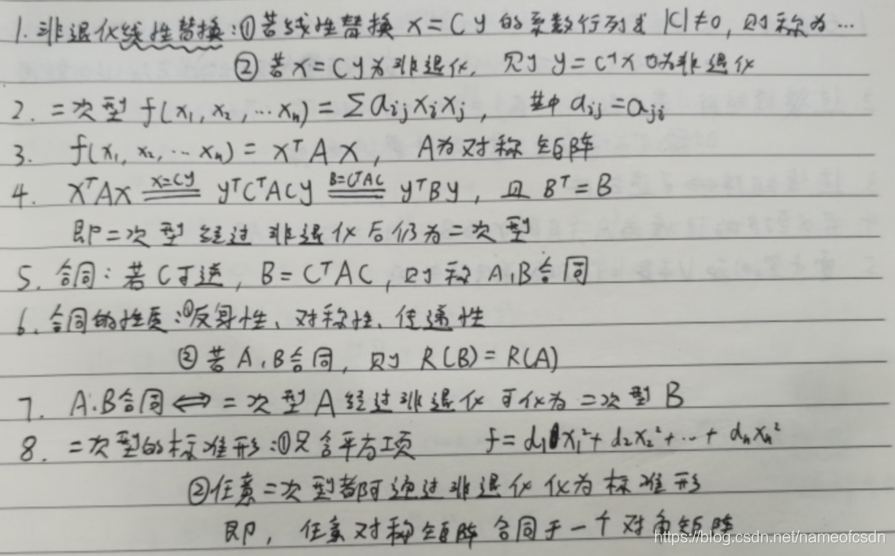 1. 非退化线性替换:①若线性替换 x=Cy 的系数行列式 |C|≠0, 则称为…
②若x=Cy为非退化, 则 y=C⁻¹x 也为非退化
2. 二次型 f(x₁, x₂, …xₙ) = Σaᵢⱼxᵢxⱼ, 其中 aᵢⱼ=aⱼᵢ
3. f(x₁, x₂, …xₙ) = xᵀAx, A为对称矩阵
4. xᵀAx x=Cy ==== yᵀCᵀACy B=CᵀAC ==== yᵀBy, 且 Bᵀ=B
即二次型经过非退化后仍为二次型
5. 合同:若C可逆, B=CᵀAC, 则称A,B合同
6. 合同的性质:①反身性、对称性、传递性
②若A,B合同, 则 R(B)=R(A)
7. A.B合同⟺二次型A经过非退化可化为二次型B
8. 二次型的标准形:①只含平方项 f=d₁x₁²+d₂x₂²+…+dₙxₙ²
②任意二次型都可通过非退化化为标准形
即, 任意对称矩阵合同于一个对角矩阵
https://blog.csdn.net/nameofcsdn